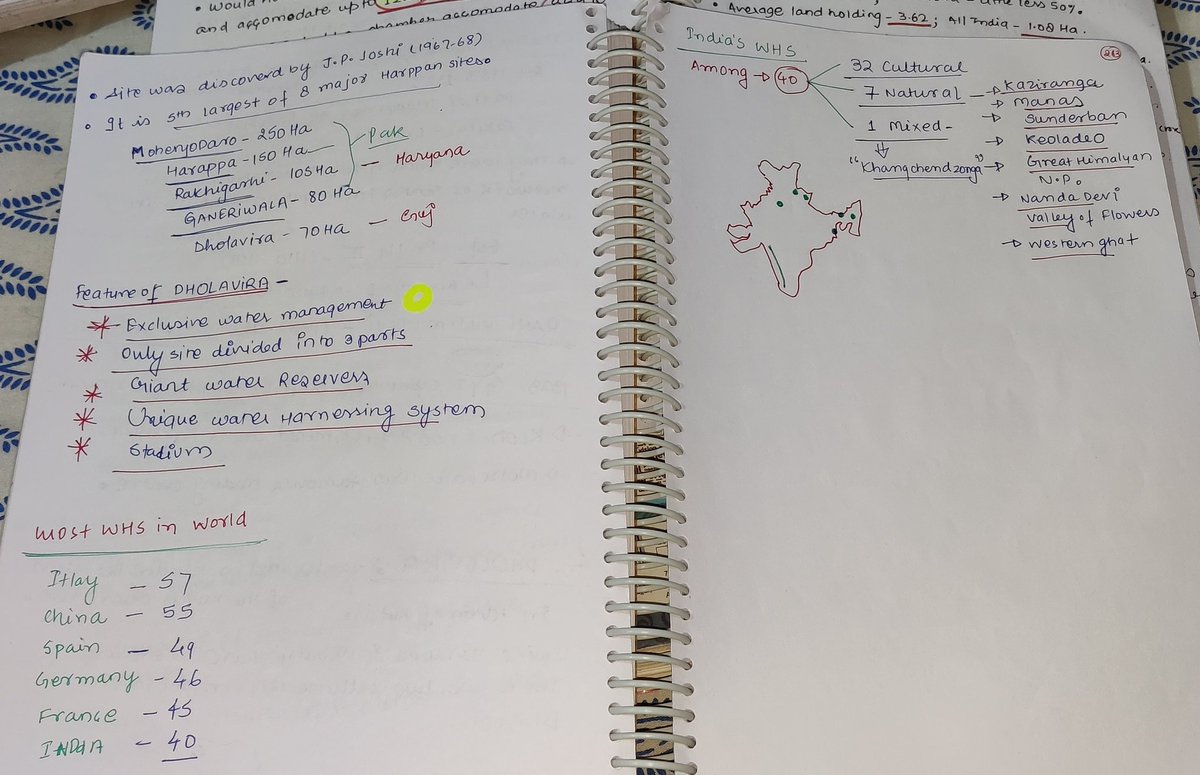 and accomodate up to
• Average land holding - 3.62; All India - 1.08 Ha.
• Site was discoverd by J.P. Joshi (1967-68)
• It is 5th largest of 8 major Harppan sites.
MohenjoDaro - 250 Ha
Harappa - 150 Ha
Pak
Rakhigarhi - 105 Ha - Haryana
GANERIWALA - 80 Ha
Dholavira - 70 Ha - Guj
Feature of DHOLAVIRA -
* Exclusive water management
* Only site divided into 3 parts
* Giant water Reservers
* Unique water Harnessing system
* Stadium
MOST WHS in World
Itlay - 57
China - 55
Spain - 49
Germany - 46
France - 45
INDIA - 40
India's WHS
Among → 40
32 Cultural
7 Natural
1 Mixed-
"Khangchendzonga"
→ Kaziranga
→ Manas
→ Sunderban
→ Keoladeo
→ Great Himalyan
N.P.
→ Nanda Devi
Valley of Flowers
→ Western ghat